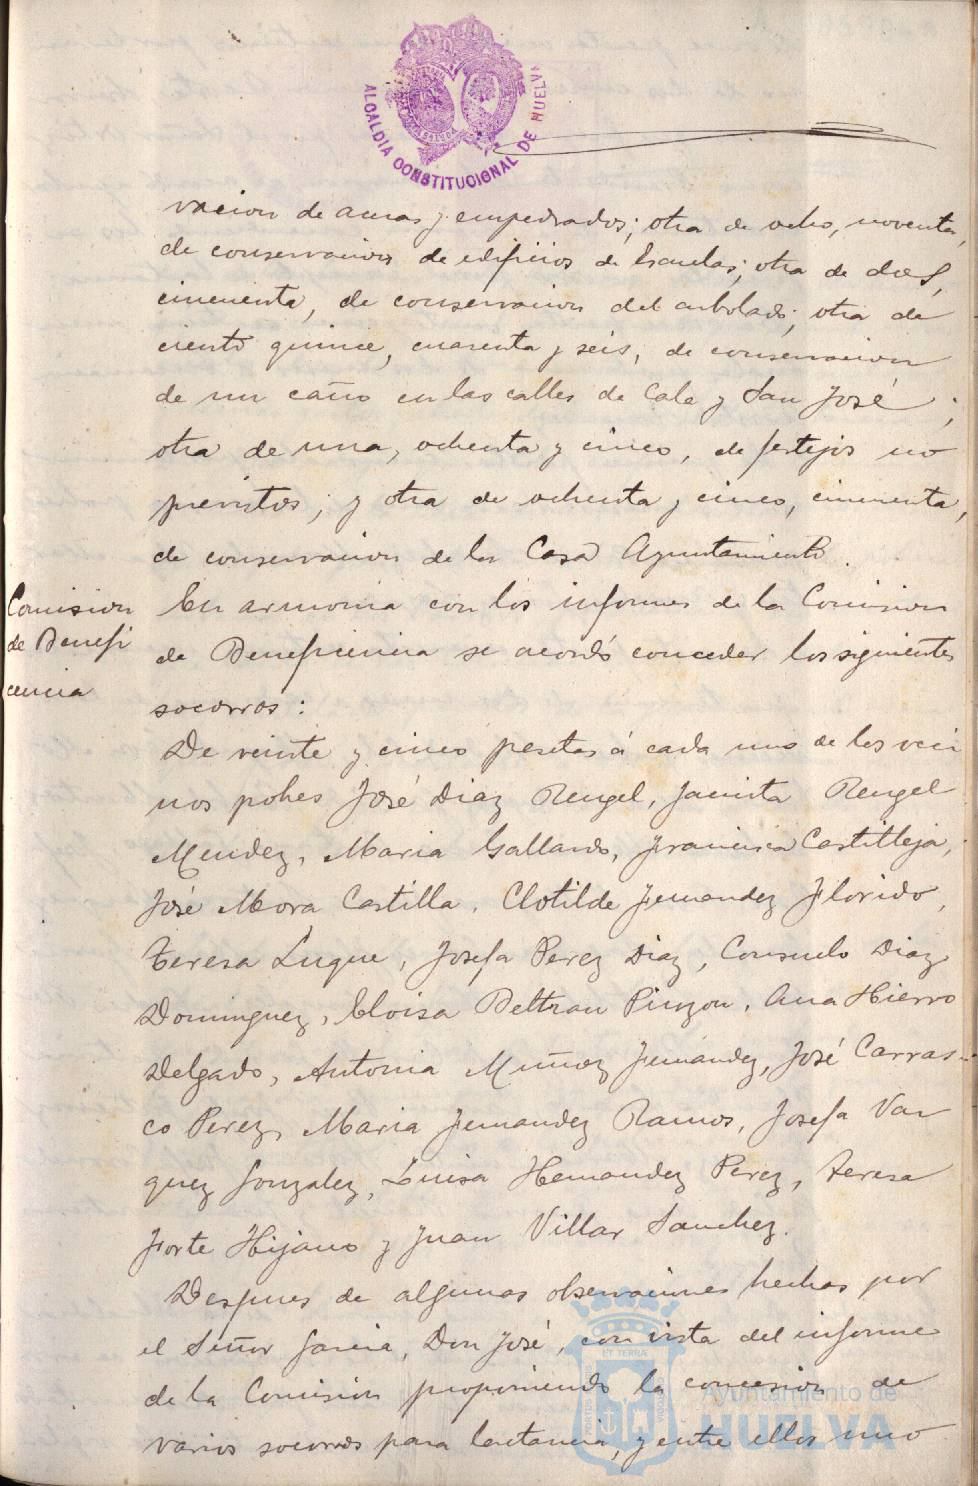 ALCALDIA CONSTITUCIONAL DE HUELVA
vacion de aceras y empedrados; otra de ocho, noventa,
de conservacion de edificios de Escuelas; otra de dos,
cincuenta, de conservacion del arbolado; otra de
ciento quince, cuarenta y seis, de conservacion
de un caño en las calles de Cala y San José;
otra de una, ochenta y cinco, de festejos no
previstos; y otra de ochenta y cinco, cincuenta,
de conservacion de la Casa Ayuntamiento.
Comision
de Benefi
cencia
En armonia con los informes de la Comision
de Beneficencia se acordó conceder los siguientes
socorros:
De veinte y cinco pesetas á cada uno de los veci
nos pobres José Diaz Rengel, Jacinta Rengel
Mendez, Maria Gallardo, Francisca Castilleja,
José Mora Castilla, Clotilde Fernandez Florido,
Teresa Luque, Josefa Perez Diaz, Consuelo Diaz
Dominguez, Eloisa Beltran Pinzon, Ana Hierro
Delgado, Antonia Muñoz Fernandez, José Carras-
co Perez, Maria Fernandez Ramos, Josefa Vaz
quez Gonzalez, Luisa Hernandez Perez, Teresa
Forte Hijano y Juan Villar Sanchez.
Despues de algunas observaciones hechas por
el Señor Garcia, Don José, con vista del informe
de la Comision proponiendo la concesion de
varios socorros para lactancia, y entre ellos uno
Ayuntamiento de
HUELVA